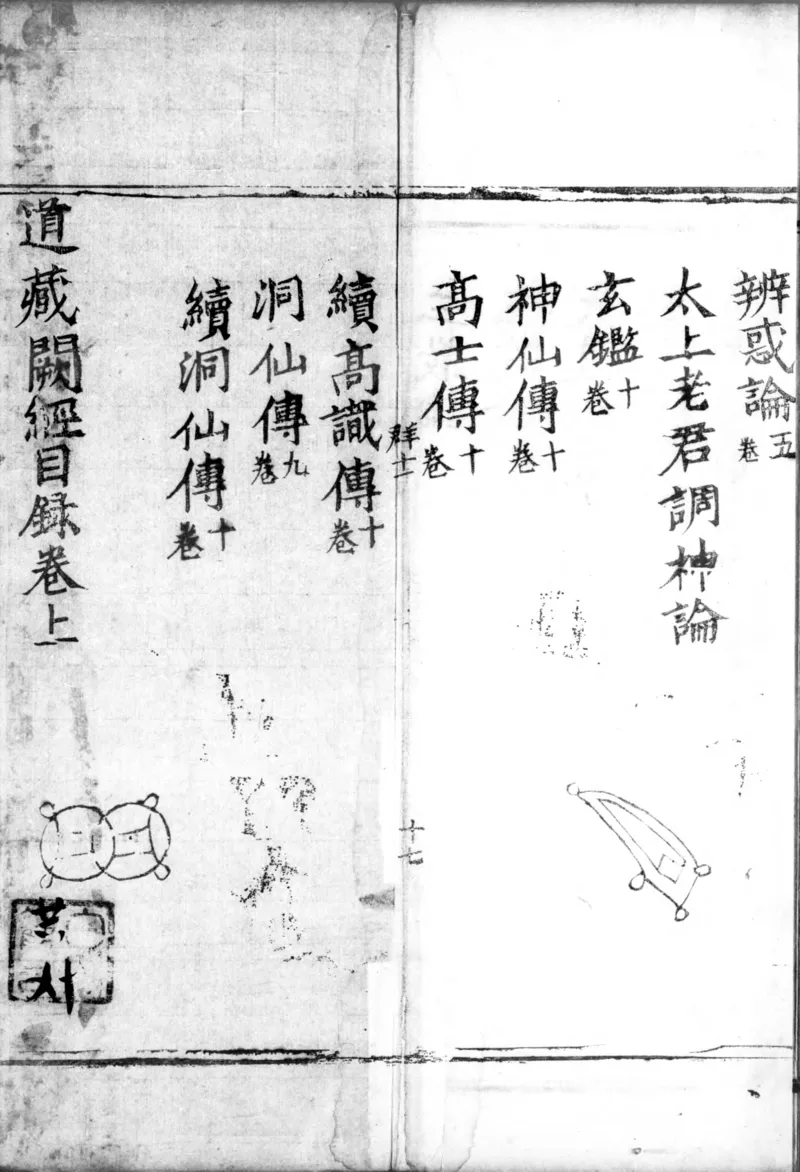 辨惑論五卷
太上老君調神論
玄鑑十卷
神仙傳十卷
髙士傳十卷
群十一
十七
續髙識傳十卷
洞仙傳九卷
續洞仙傳十卷
道藏闕經目録卷上